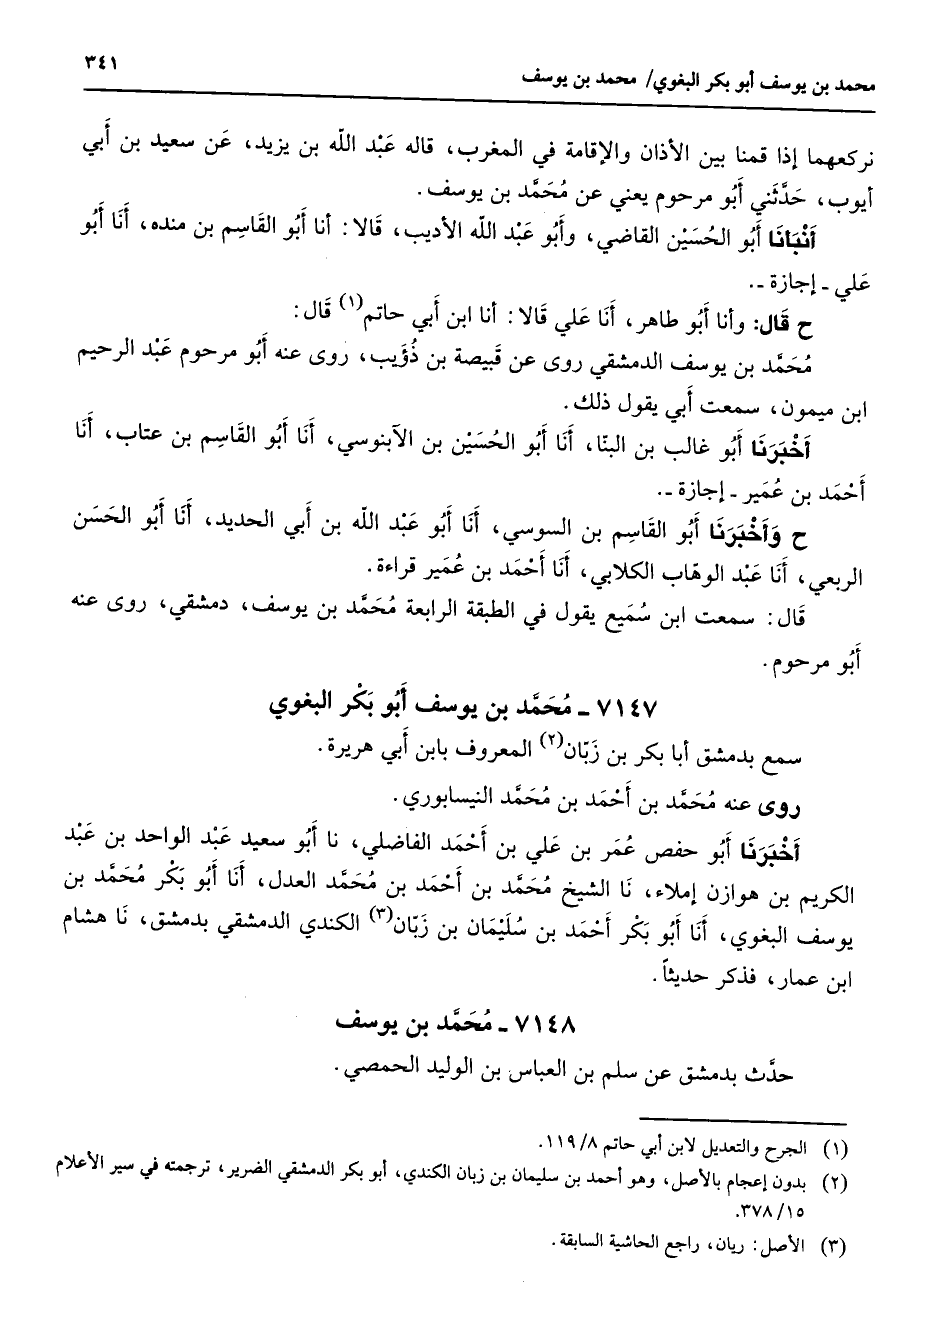 محمد بن يوسف أبو بكر البغوي/ محمد بن يوسف
٣٤١
نركعهما إذا قمنا بين الأذان والإقامة في المغرب، قاله عَبْد اللّه بن يزيد، عَن سعيد بن أَبي
أيوب، حَدَّثَني أَبُو مرحوم يعني عن مُحَمَّد بن يوسف.
أَنْبَانَا أَبُو الحُسَيْن القاضي، وأَبُو عَبْد اللّه الأديب، قَالا: أنا أَبُو القَاسِم بن منده، أَنَا أَبُو
عَلي ـ إجازة ـ.
ح قَال: وأنا أَبُو طاهر، أَنَا عَلي قَالا: أنا ابن أَبي حاتم(١) قَال:
مُحَمَّد بن يوسف الدمشقي روى عن قَبيصة بن ذُؤَيب، روى عنه أَبُو مرحوم عَبْد الرحيم
ابن ميمون، سمعت أَبي يقول ذلك.
أَخْبَرَنَا أَبُو غالب بن البنّا، أَنَا أَبُو الحُسَيْن بن الآبنوسي، أَنَا أَبُو القَاسِم بن عتاب، أَنَا
أَحْمَد بن عُمَير ـ إجازة ـ.
ح وَأَخْبَرَنَا أَبُو القَاسِم بن السوسي، أَنَا أَبُو عَبْد اللّه بن أَبي الحديد، أَنَا أَبُو الحَسَن
الربعي، أَنَا عَبْد الوهّاب الكلابي، أَنَا أَحْمَد بن عُمَير قراءة.
قَال: سمعت ابن سُمَيع يقول في الطبقة الرابعة مُحَمَّد بن يوسف، دمشقي، روى عنه
أَبُو مرحوم.
٧١٤٧ ـ مُحَمَّد بن يوسف أَبُو بَكْر البغوي
سمع بدمشق أبا بكر بن زَبّان(٢) المعروف بابن أَبي هريرة.
روى عنه مُحَمَّد بن أَحْمَد بن مُحَمَّد النيسابوري.
أَخْبَرَنَا أَبُو حفص عُمَر بن عَلي بن أَحْمَد الفاضلي، نا أَبُو سعيد عَبْد الواحد بن عَبْد
الكريم بن هوازن إملاء، نَا الشيخ مُحَمَّد بن أَحْمَد بن مُحَمَّد العدل، أَنَا أَبُو بَكْر مُحَمَّد بن
يوسف البغوي، أَنَا أَبُو بَكْر أَحْمَد بن سُلَيْمَان بن زَبّان(٣) الكندي الدمشقي بدمشق، نَا هشام
ابن عمار، فذكر حديثاً.
٧١٤٨ ـ مُحَمَّد بن يوسف
حدَّث بدمشق عن سلم بن العباس بن الوليد الحمصي.
(١) الجرح والتعديل لابن أبي حاتم ٨/ ١١٩.
(٢) بدون إعجام بالأصل، وهو أحمد بن سليمان بن زبان الكندي، أبو بكر الدمشقي الضرير، ترجمته في سير الأعلام
١٥/ ٣٧٨.
(٣) الأصل: ريان، راجع الحاشية السابقة.